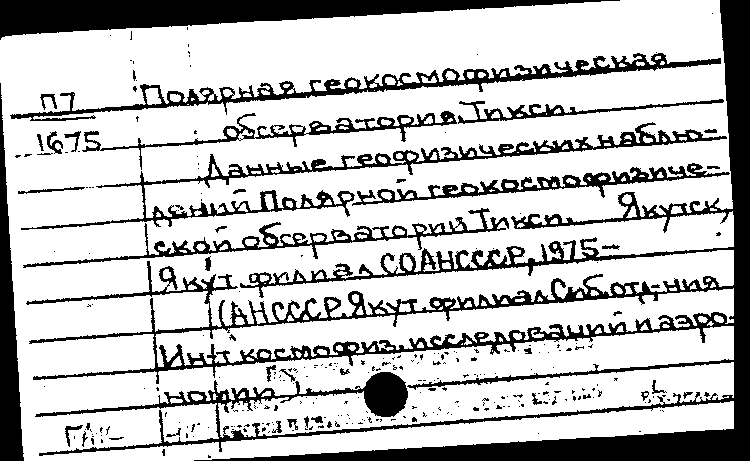 П7
1675
Полярная геокосмофизическая
обсерватория. Тикси.
Данные геофизических наблю-
дений Полярной геокосмофизиче-
ской обсерватории Тикси. Якутск,
Якут. филиал СОАНСССР, 1975-
(АНСССР. Якут. филиал Сиб. отд-ния
Ин-т космофиз. исследований и аэро-
номии).